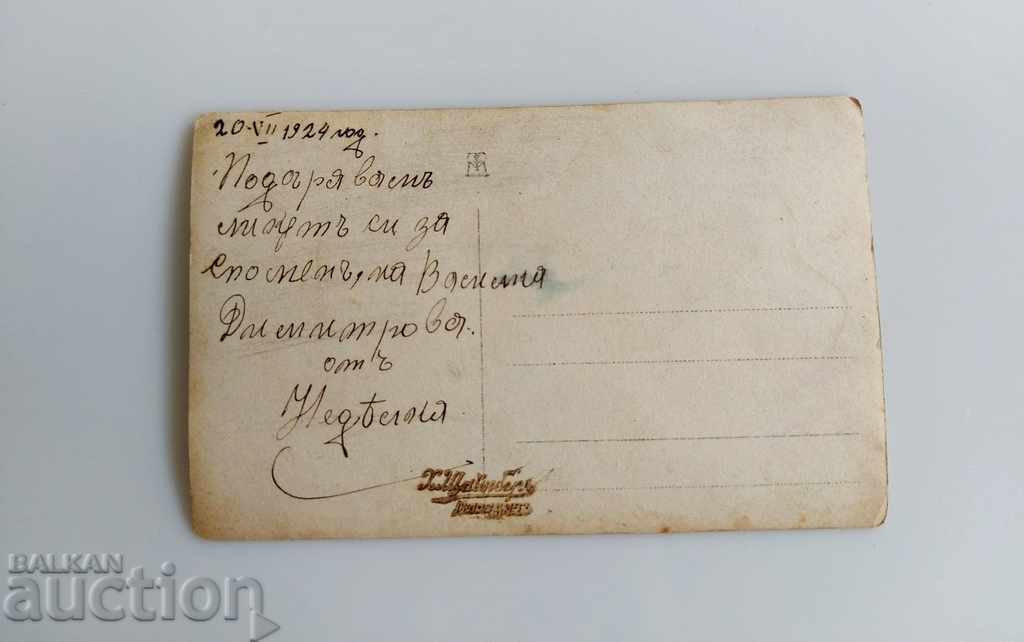 20·VII 1924 год.
Подаравамъ
ликътъ си за
споменъ, на Василка
Димитрова.
отъ
Недѣлка
Х. Щайнберъ
BALKAN
auction